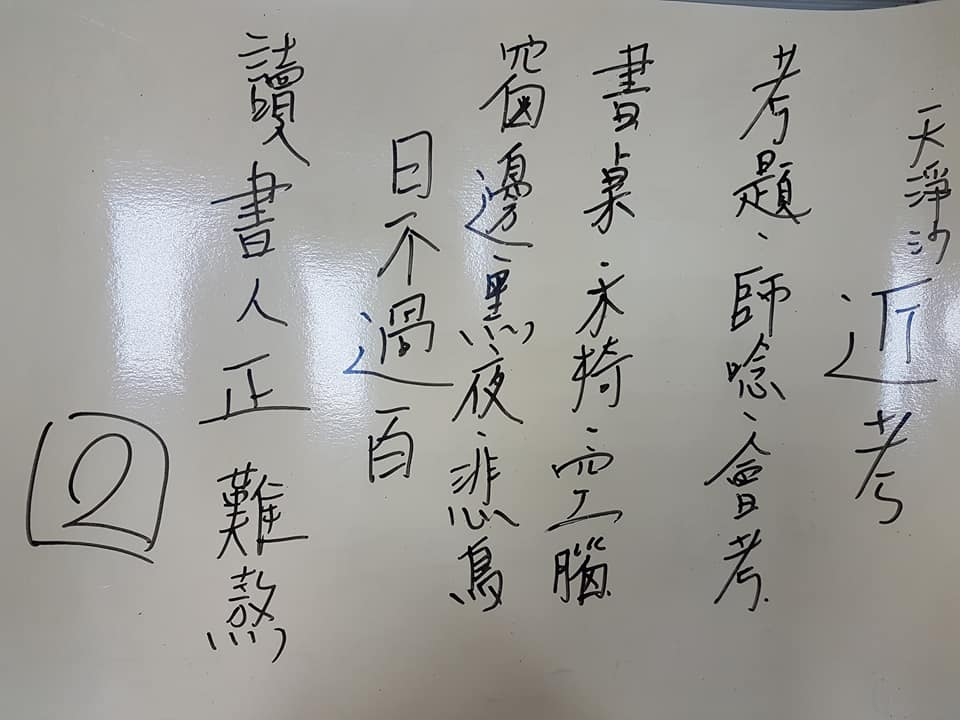 天淨沙
近考
考題、師唸、會考
書桌、木椅、空腦
窗邊、黑夜、悲鳥
日不過百
讀書人正難熬
2